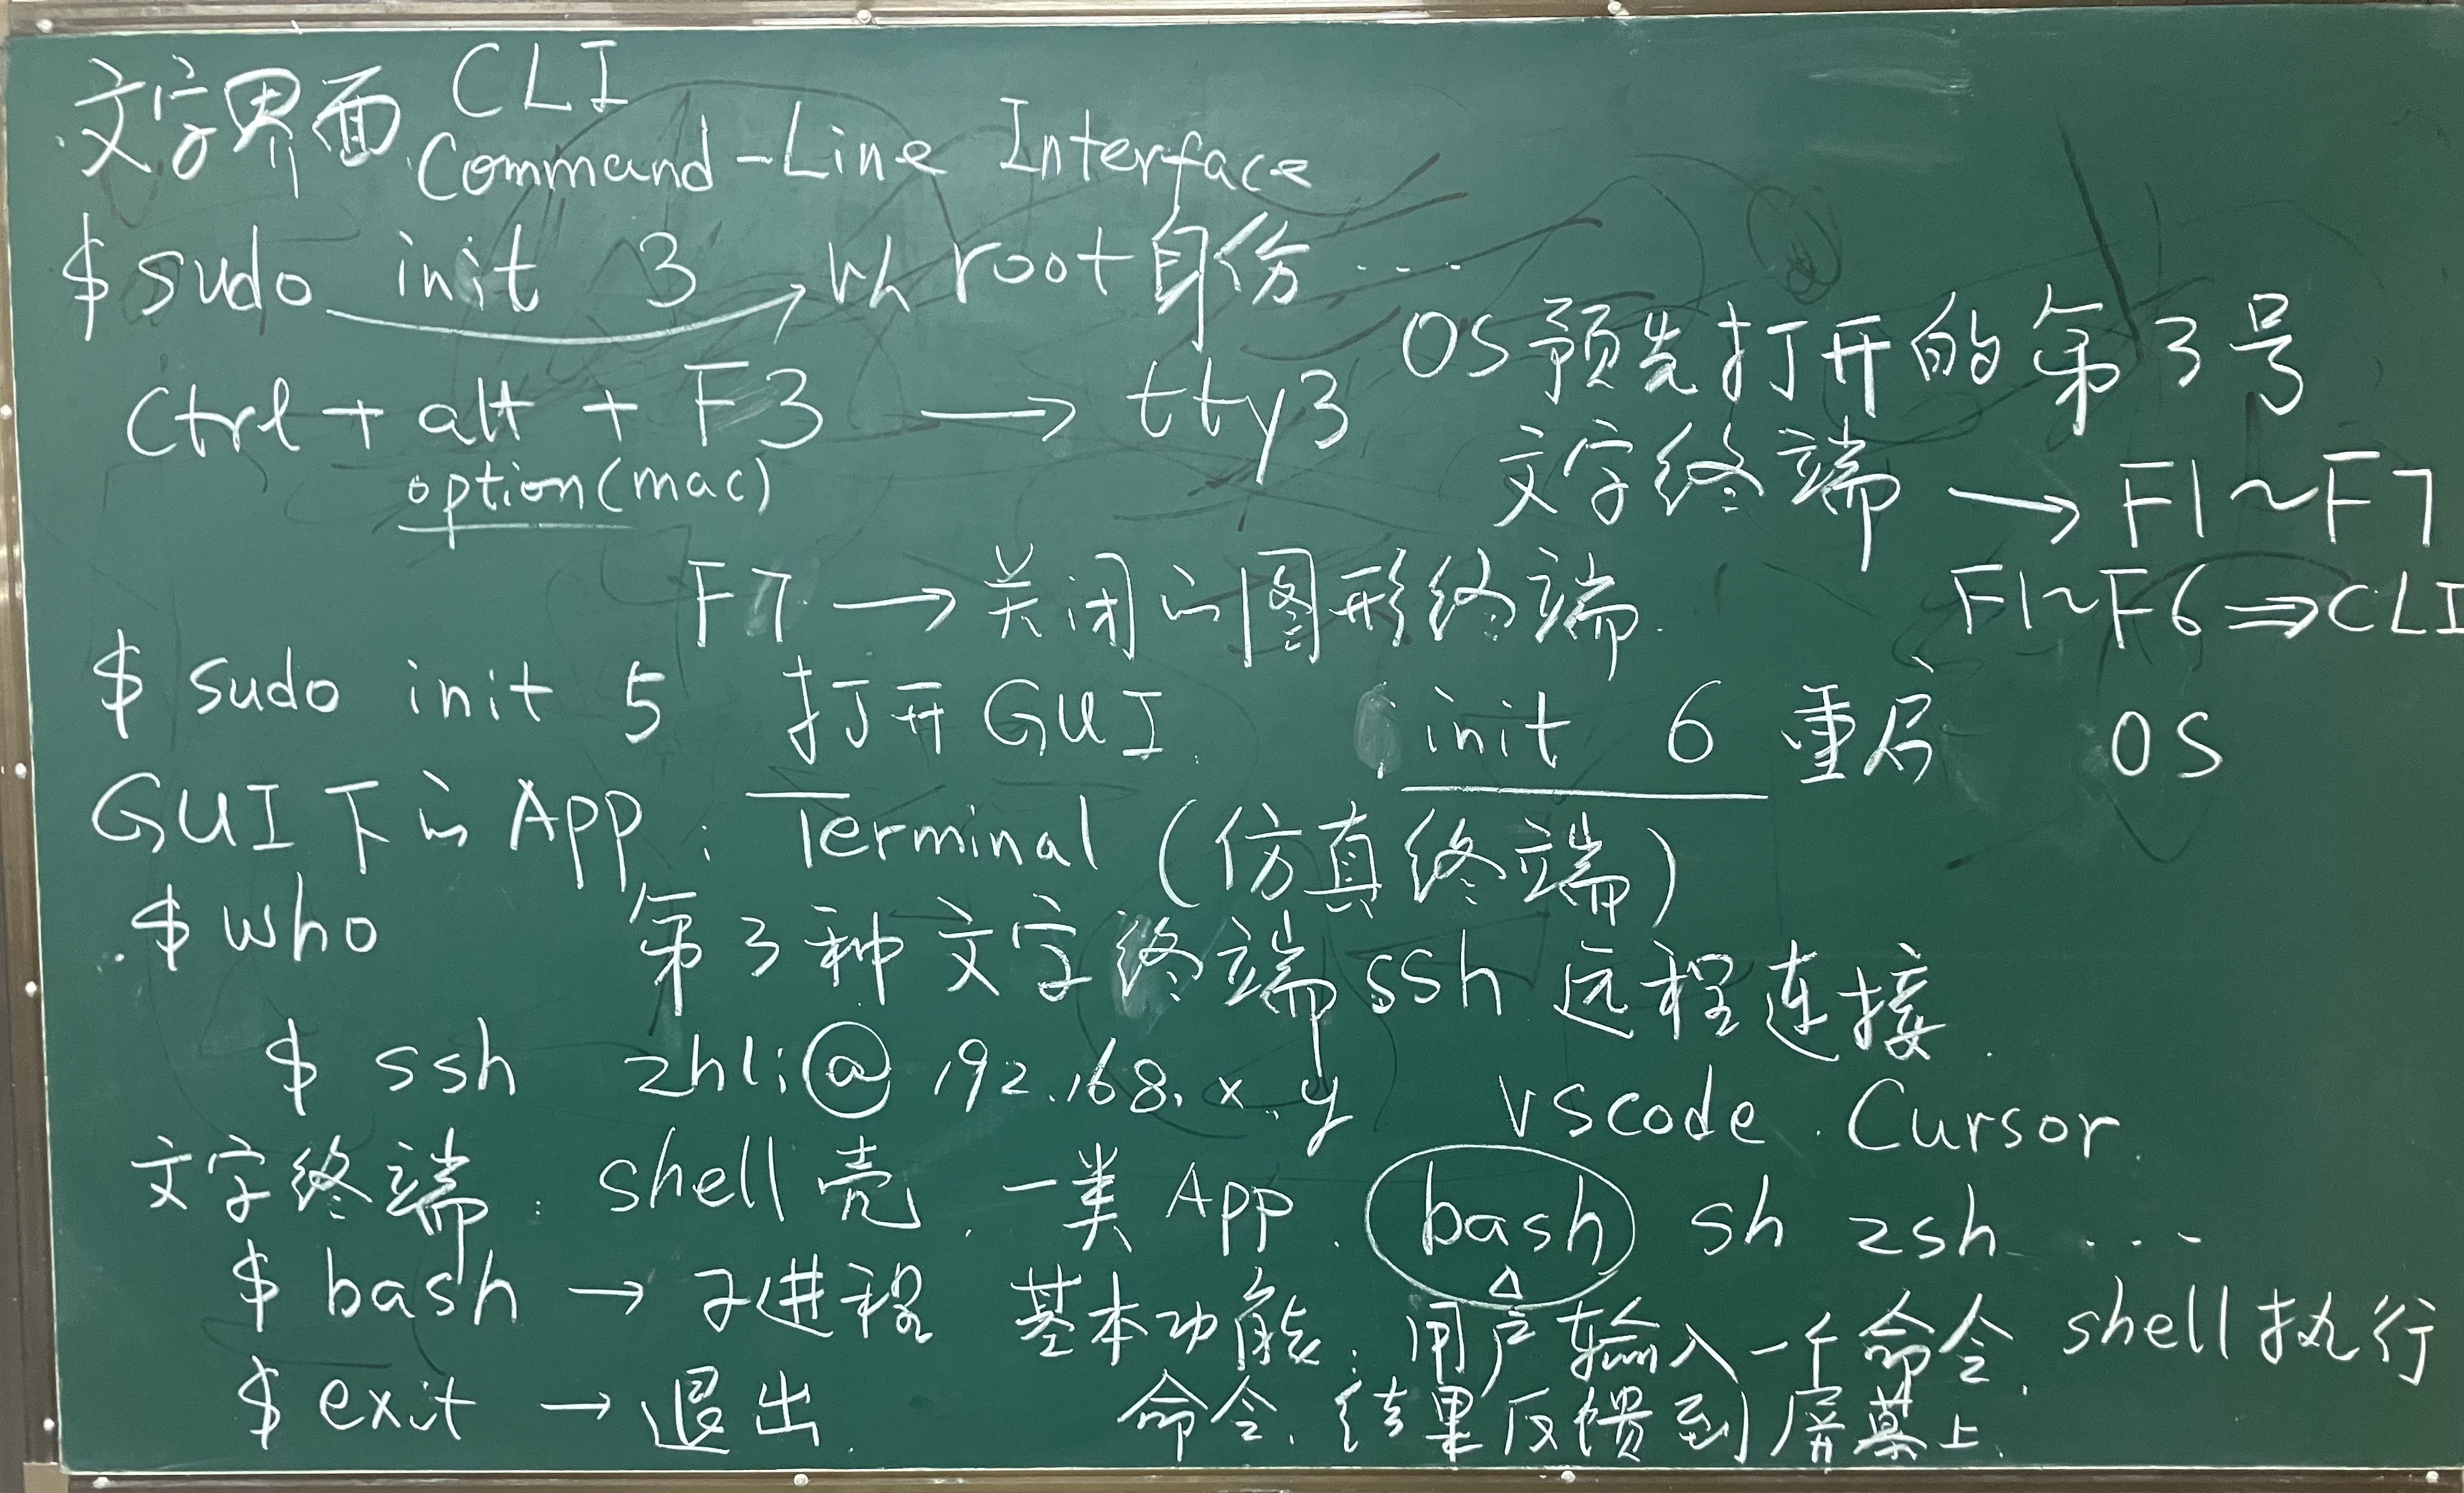 文字界面 CLI
Command-Line Interface
$ sudo init 3 → 以 root 身份 ...
Ctrl + alt + F3 → tty3 OS预先打开的第3号
option(mac) 文字终端 → F1~F7
F7 → 关闭的图形终端. F1~F6 ⇒ CLI
$ sudo init 5 打开GUI. init 6 重启 OS
GUI下的App: Terminal (仿真终端)
$ who 第3种文字终端 ssh 远程连接.
$ ssh zhli@192.168.x.y vscode. Cursor.
文字终端: shell 壳. 一类 App. bash sh zsh ...
$ bash → 子进程 基本功能: 用户输入一个命令. shell执行
$ exit → 退出. 命令. 结果反馈到屏幕上.